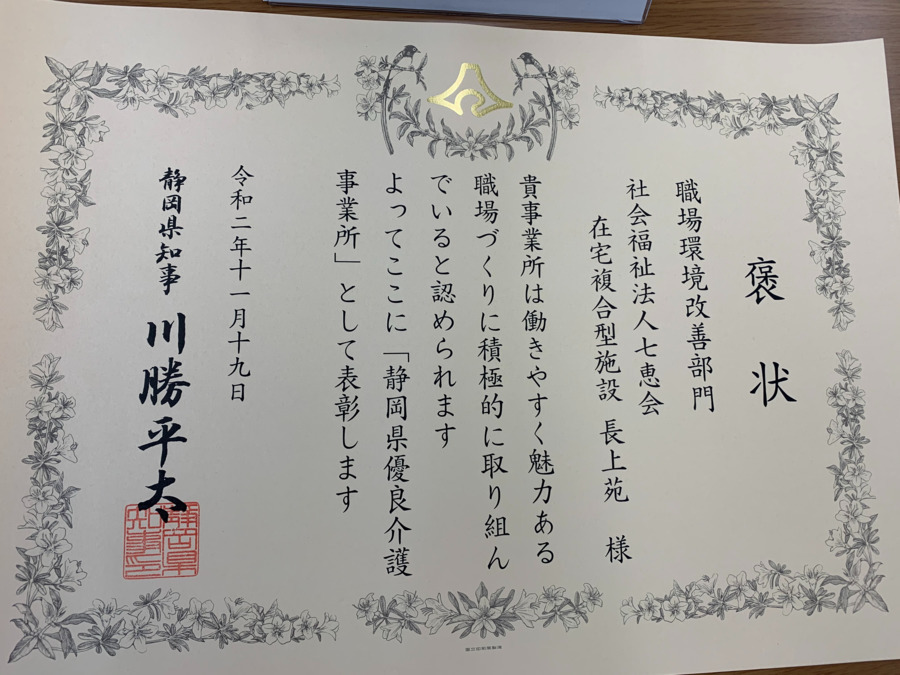 褒状
職場環境改善部門
社会福祉法人七恵会
在宅複合型施設 長上苑 様
貴事業所は働きやすく魅力ある
職場づくりに積極的に取り組ん
でいると認められます
よってここに「静岡県優良介護
事業所」として表彰します
令和二年十一月十九日
静岡県知事 川勝平太
静岡県知事之印